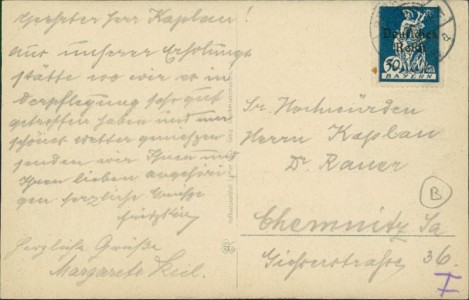 Geehrter Herr Kaplan!
Aus unserer Erholungs
stätte wo wir es in
Verpflegung sehr gut
getroffen haben und nur
schönes Wetter genießen
senden wir Ihnen und
Ihren lieben Angehöri
gen herzliche Grüße
Herzliche Grüße
Margarete Keil.
Deutsches
Reich
50
BAYERN
Sr. Hochwürden
Herrn Kaplan
Dr. Rauer
B
Chemnitz Sa
36.
I